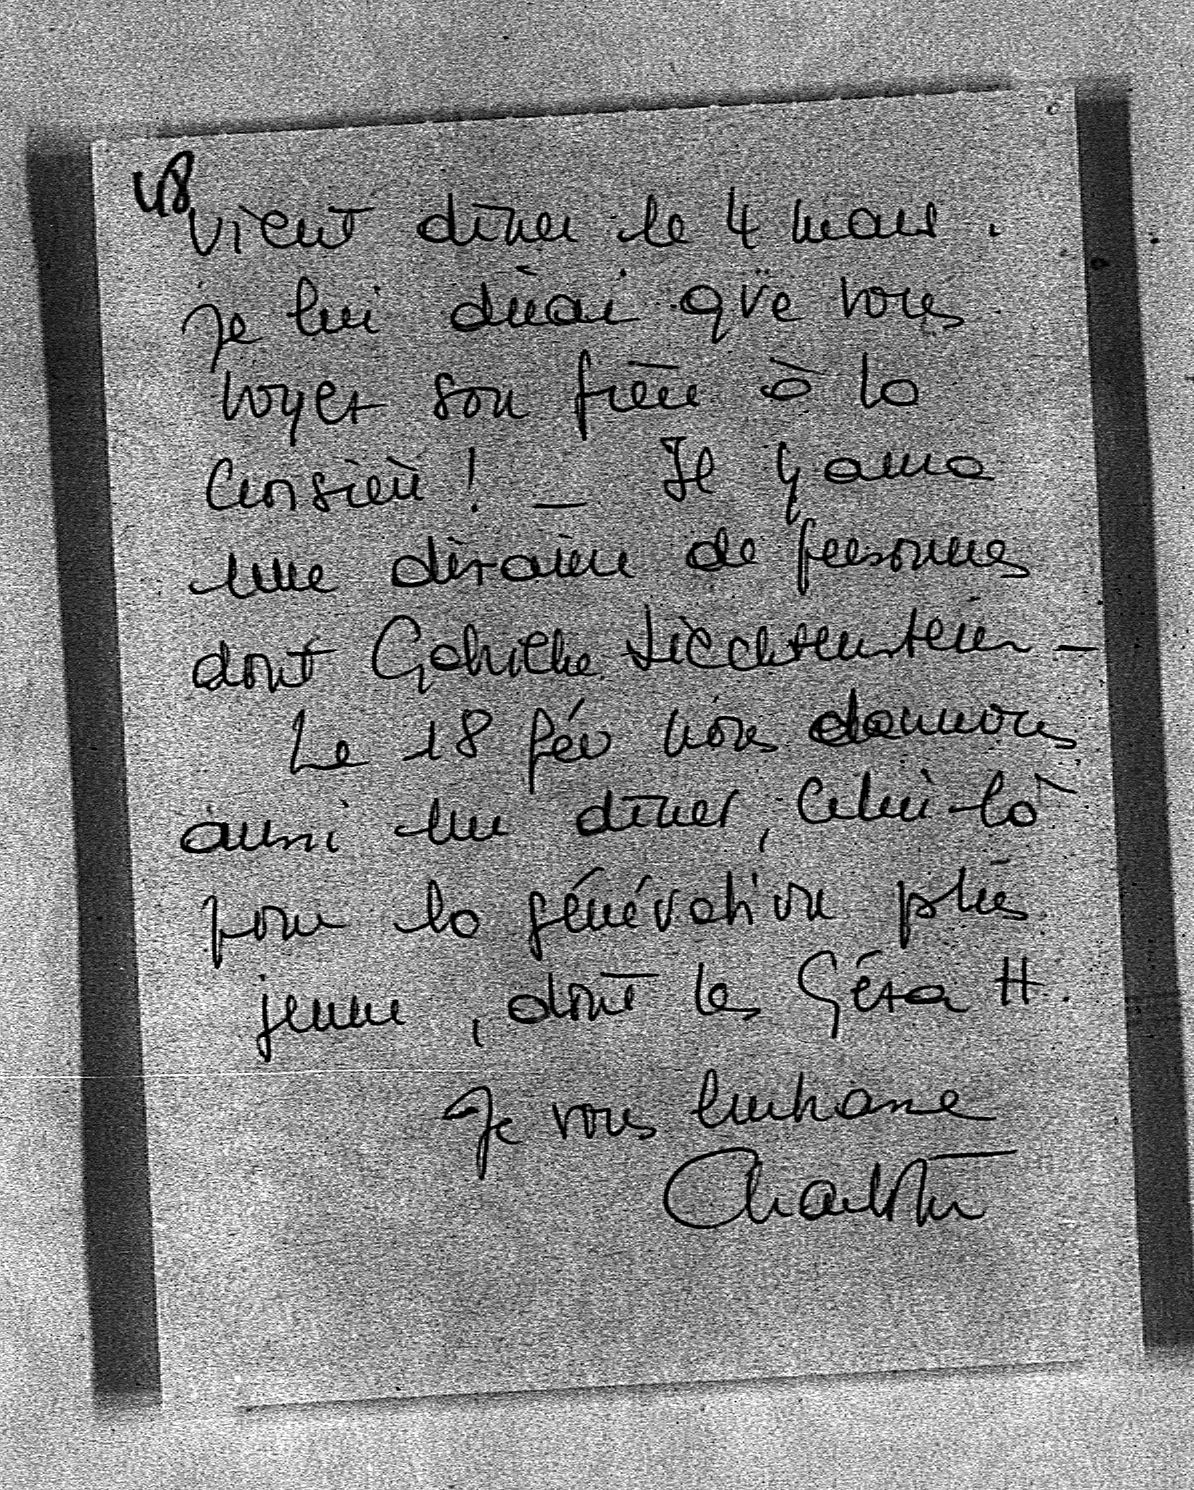 48
vient dîner le 4 mars.
Je lui dirai que vous
voyez son frère à la
Croisière ! _ Il y aura
une dizaine de personnes
dont Liechtenstein _
Le 18 fév nous donnons
aussi un dîner, celui-là
pour la génération plus
jeune, dont les Géza H.
Je vous embrasse